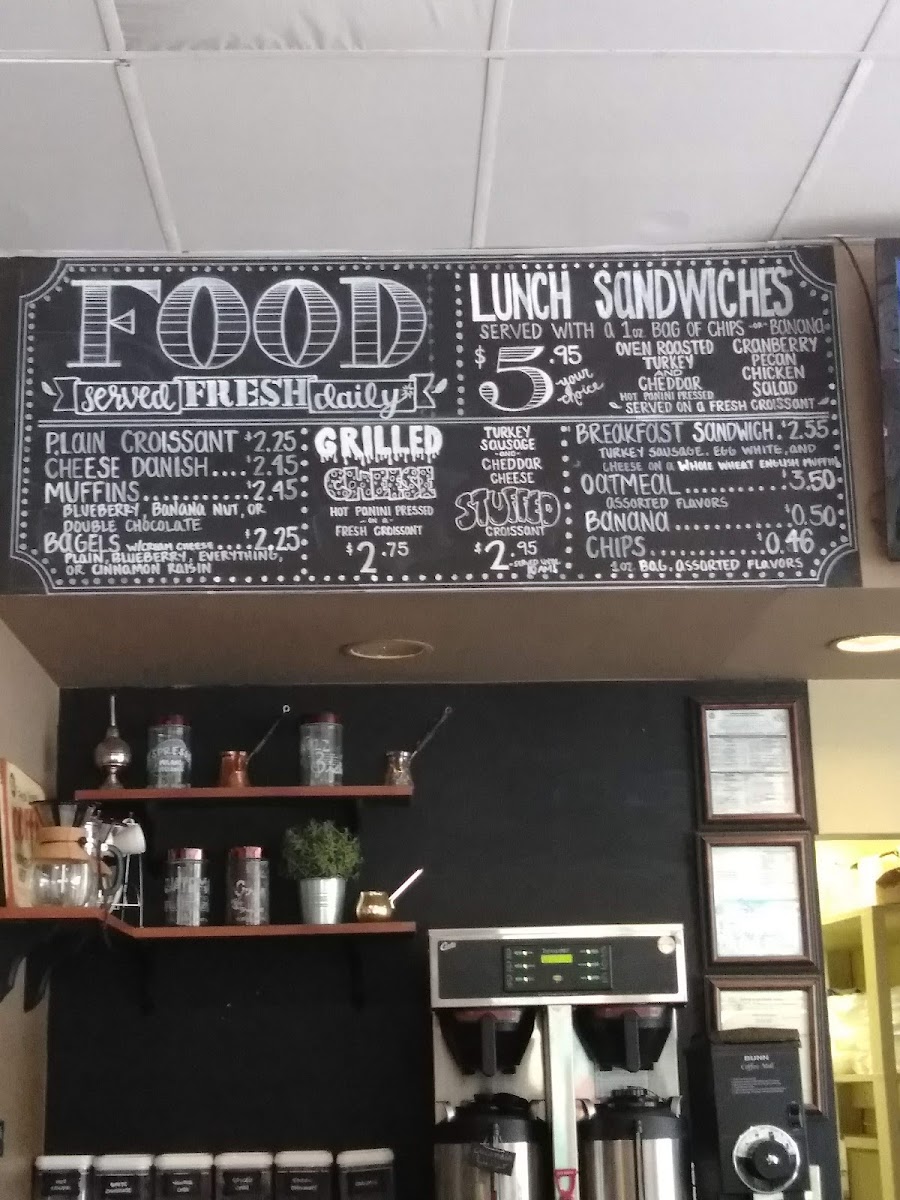 FOOD
served FRESH daily
LUNCH SANDWICHES
SERVED WITH a 1oz BAG OF CHIPS -or- BANANA
$5.95
your choice
OVEN ROASTED
TURKEY
AND
CHEDDAR
HOT PANINI PRESSED
CRANBERRY
PECAN
CHICKEN
SALAD
SERVED ON A FRESH CROISSANT
PLAIN CROISSANT $2.25
CHEESE DANISH.... $2.45
MUFFINS............ $2.45
BLUEBERRY, BANANA NUT, OR
DOUBLE CHOCOLATE
BAGELS W/CREAM CHEESE.... $2.25
PLAIN, BLUEBERRY, EVERYTHING,
OR CINNAMON RAISIN
GRILLED
CHEESE
HOT PANINI PRESSED
on a
FRESH CROISSANT
$2.75
TURKEY
SAUSAGE
-AND-
CHEDDAR
CHEESE
STUFFED
CROISSANT
$2.95
BREAKFAST SANDWICH. $2.55
TURKEY SAUSAGE, EGG WHITE, AND
CHEESE ON A WHOLE WHEAT ENGLISH MUFFIN
OATMEAL............ $3.50
ASSORTED FLAVORS
BANANA............ $0.50
CHIPS............ $0.46
1 oz. BAG, ASSORTED FLAVORS
Curtis
BUNN
Coffee Mill